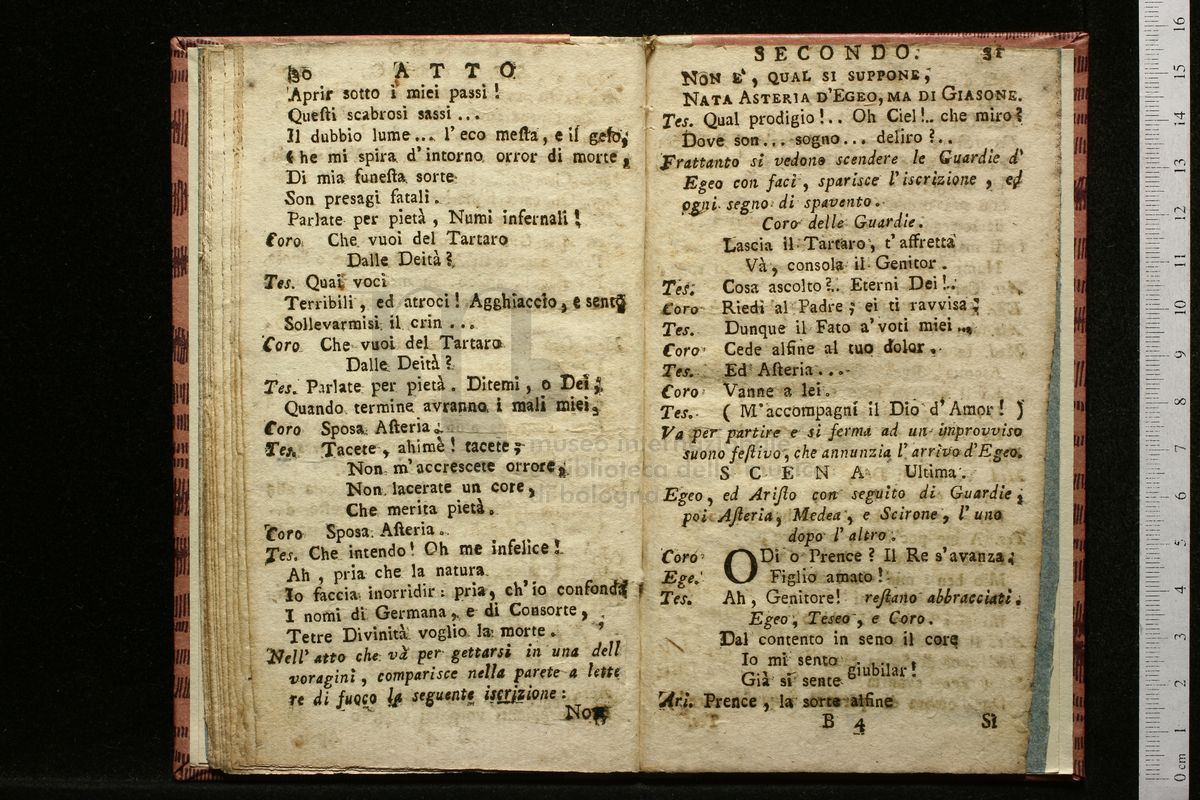 30 ATTO
Aprir sotto i miei passi!
Questi scabrosi sassi...
Il dubbio lume... l'eco mesta, e il gelo,
Che mi spira d'intorno orror di morte,
Di mia funesta sorte
Son presagi fatali.
Parlate per pietà, Numi infernali!
Coro Che vuoi del Tartaro
Dalle Deità?
Tes. Quai voci
Terribili, ed atroci! Agghiaccio, e sento
Sollevarmisi il crin...
Coro Che vuoi del Tartaro
Dalle Deità?
Tes. Parlate per pietà. Ditemi, o Dei,
Quando termine avranno i mali miei.
Coro Sposa Asteria.
Tes. Tacete, ahimè! tacete;
Non m'accrescete orrore,
Non lacerate un core,
Che merita pietà.
Coro Sposa Asteria.
Tes. Che intendo! Oh me infelice!
Ah, pria che la natura
Io faccia inorridir: pria, ch'io confonda
I nomi di Germana, e di Consorte,
Tetre Divinità voglio la morte.
Nell'atto che và per gettarsi in una dell
voragini, comparisce nella parete a lette
re di fuoco la seguente iscrizione:
Non
SECONDO. 31
NON E', QUAL SI SUPPONE,
NATA ASTERIA D'EGEO, MA DI GIASONE.
Tes. Qual prodigio!.. Oh Ciel!.. che miro?
Dove son... sogno... deliro?..
Frattanto si vedono scendere le Guardie d'
Egeo con faci, sparisce l'iscrizione, ed
ogni segno di spavento.
Coro delle Guardie.
Lascia il Tartaro, t'affretta
Và, consola il Genitor.
Tes. Cosa ascolto?.. Eterni Dei!..
Coro Riedi al Padre; ei ti ravvisa;
Tes. Dunque il Fato a'voti miei...
Coro Cede alfine al tuo dolor.
Tes. Ed Asteria...
Coro Vanne a lei.
Tes. (M'accompagni il Dio d'Amor!)
Va per partire e si ferma ad un improvviso
suono festivo, che annunzia l'arrivo d'Egeo.
SCENA Ultima.
Egeo, ed Aristo con seguito di Guardie,
poi Asteria, Medea, e Scirone, l'uno
dopo l'altro.
Coro ODi o Prence? Il Re s'avanza.
Ege. Figlio amato!
Tes. Ah, Genitore! restano abbracciati.
Egeo, Teseo, e Coro.
Dal contento in seno il core
Io mi sento
Già si sente giubilar!
Ari. Prence, la sorte alfine
B 4 Sì
museo inter
biblioteca della musica
di bologna
16 15 14 13 12 11 10 9 8 7 6 5 4 3 2 1 0 cm